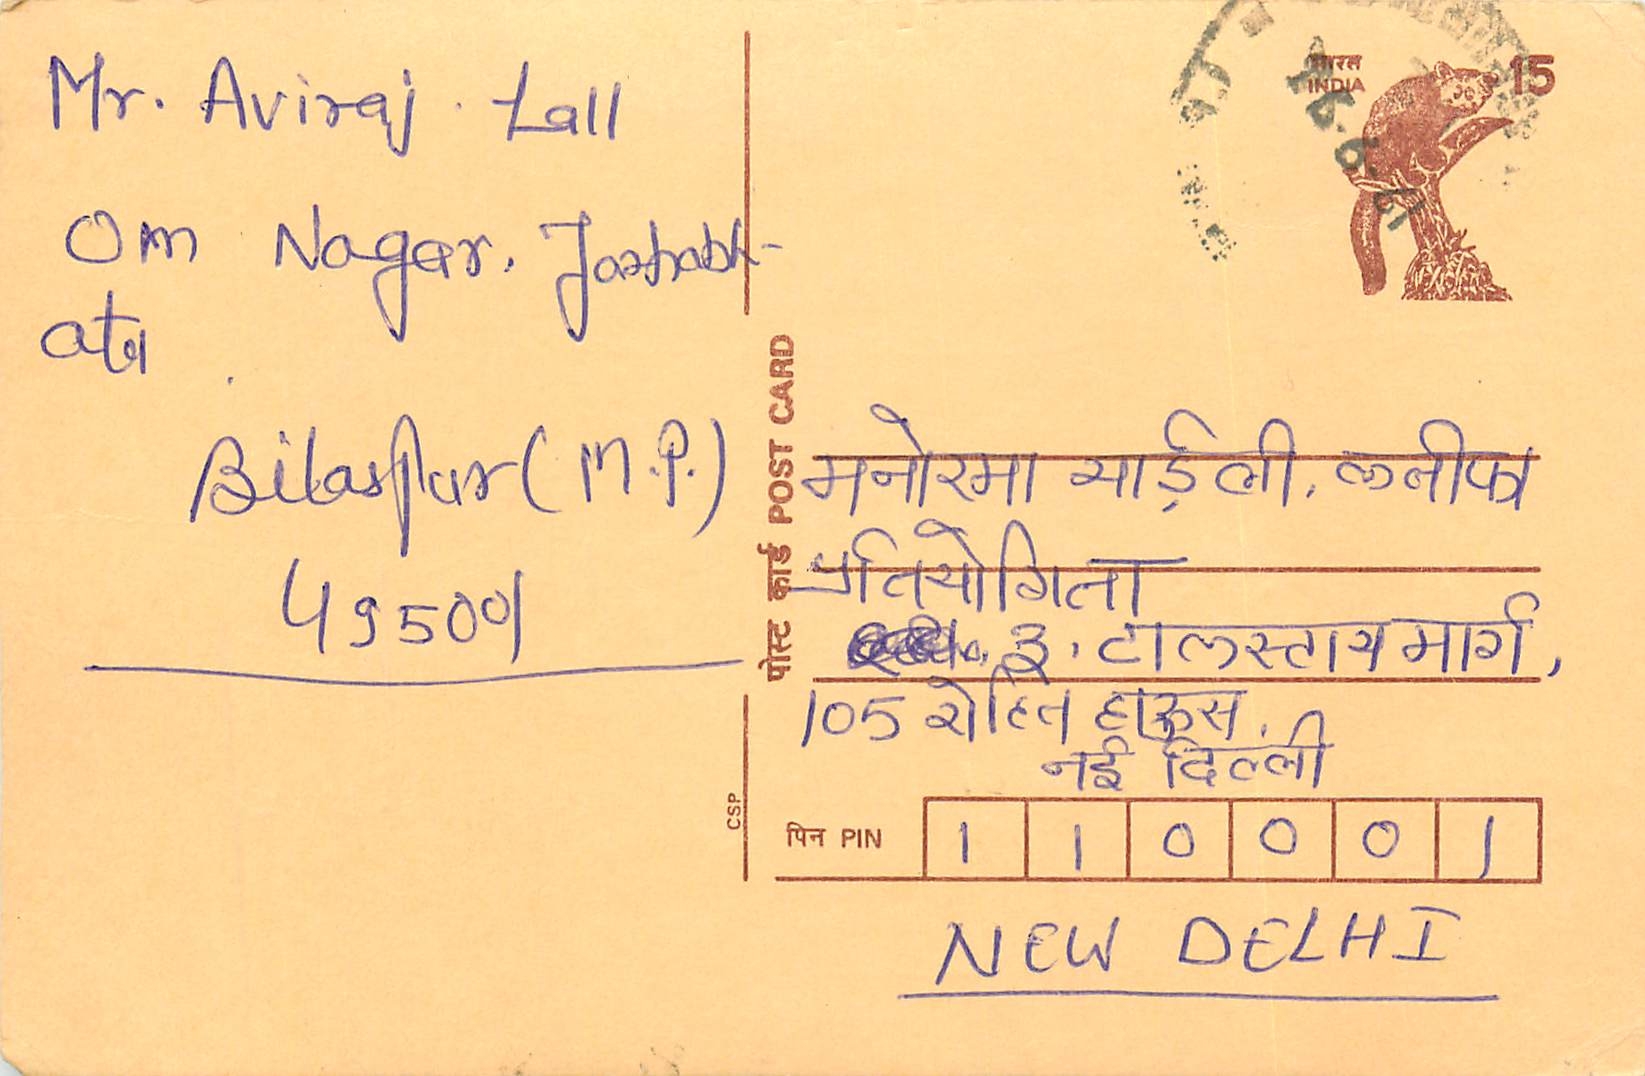 Mr. Aviraj Lall
Om Nagar, Jarhabh-
ata
Bilaspur (M.P.)
495001
भारत
INDIA
15
पोस्ट कार्ड POST CARD
CSP
मनोरमा यार्ड़ली, लतीफा
प्रतियोगिता
३, टालस्टाय मार्ग,
105 रोहित हाऊस,
नई दिल्ली
पिन PIN
1 1 0 0 0 1
NEW DELHI